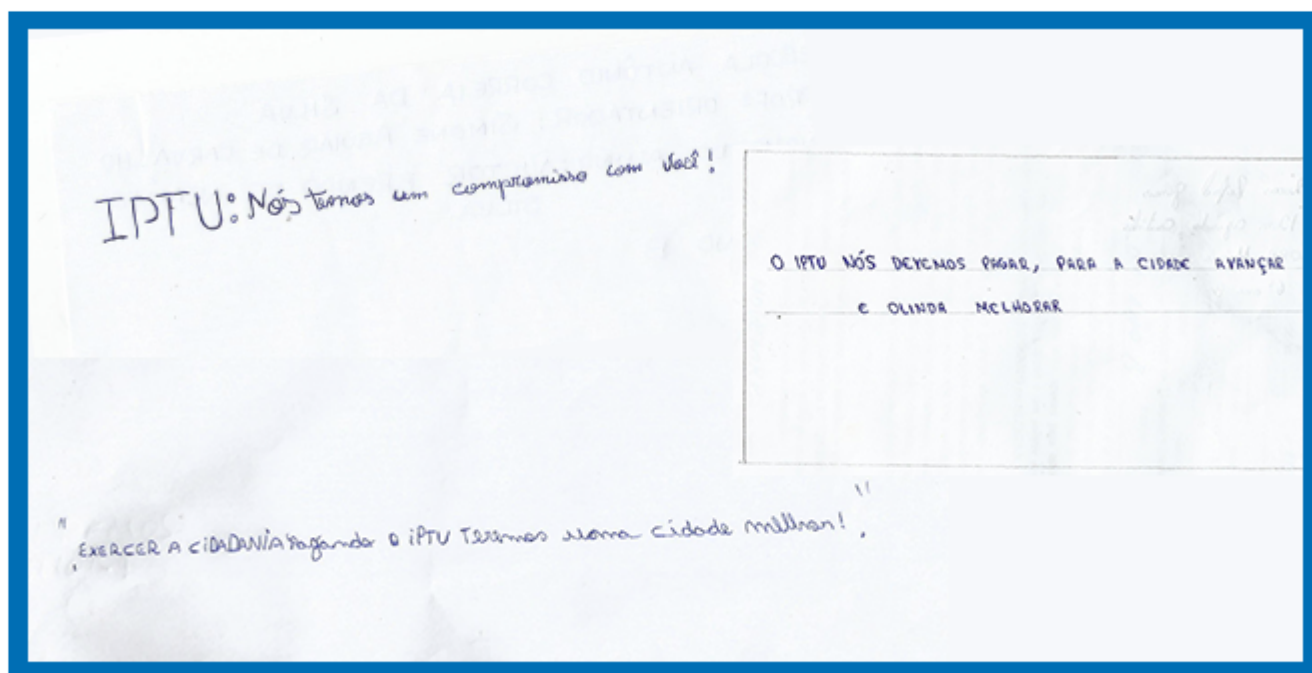 IPTU: Nós temos um compromisso com você!
O IPTU NÓS DEVEMOS PAGAR, PARA A CIDADE AVANÇAR
E OLINDA MELHORAR
"EXERCER A CIDADANIA Pagando o iPTU Teremos uma cidade milhor!"